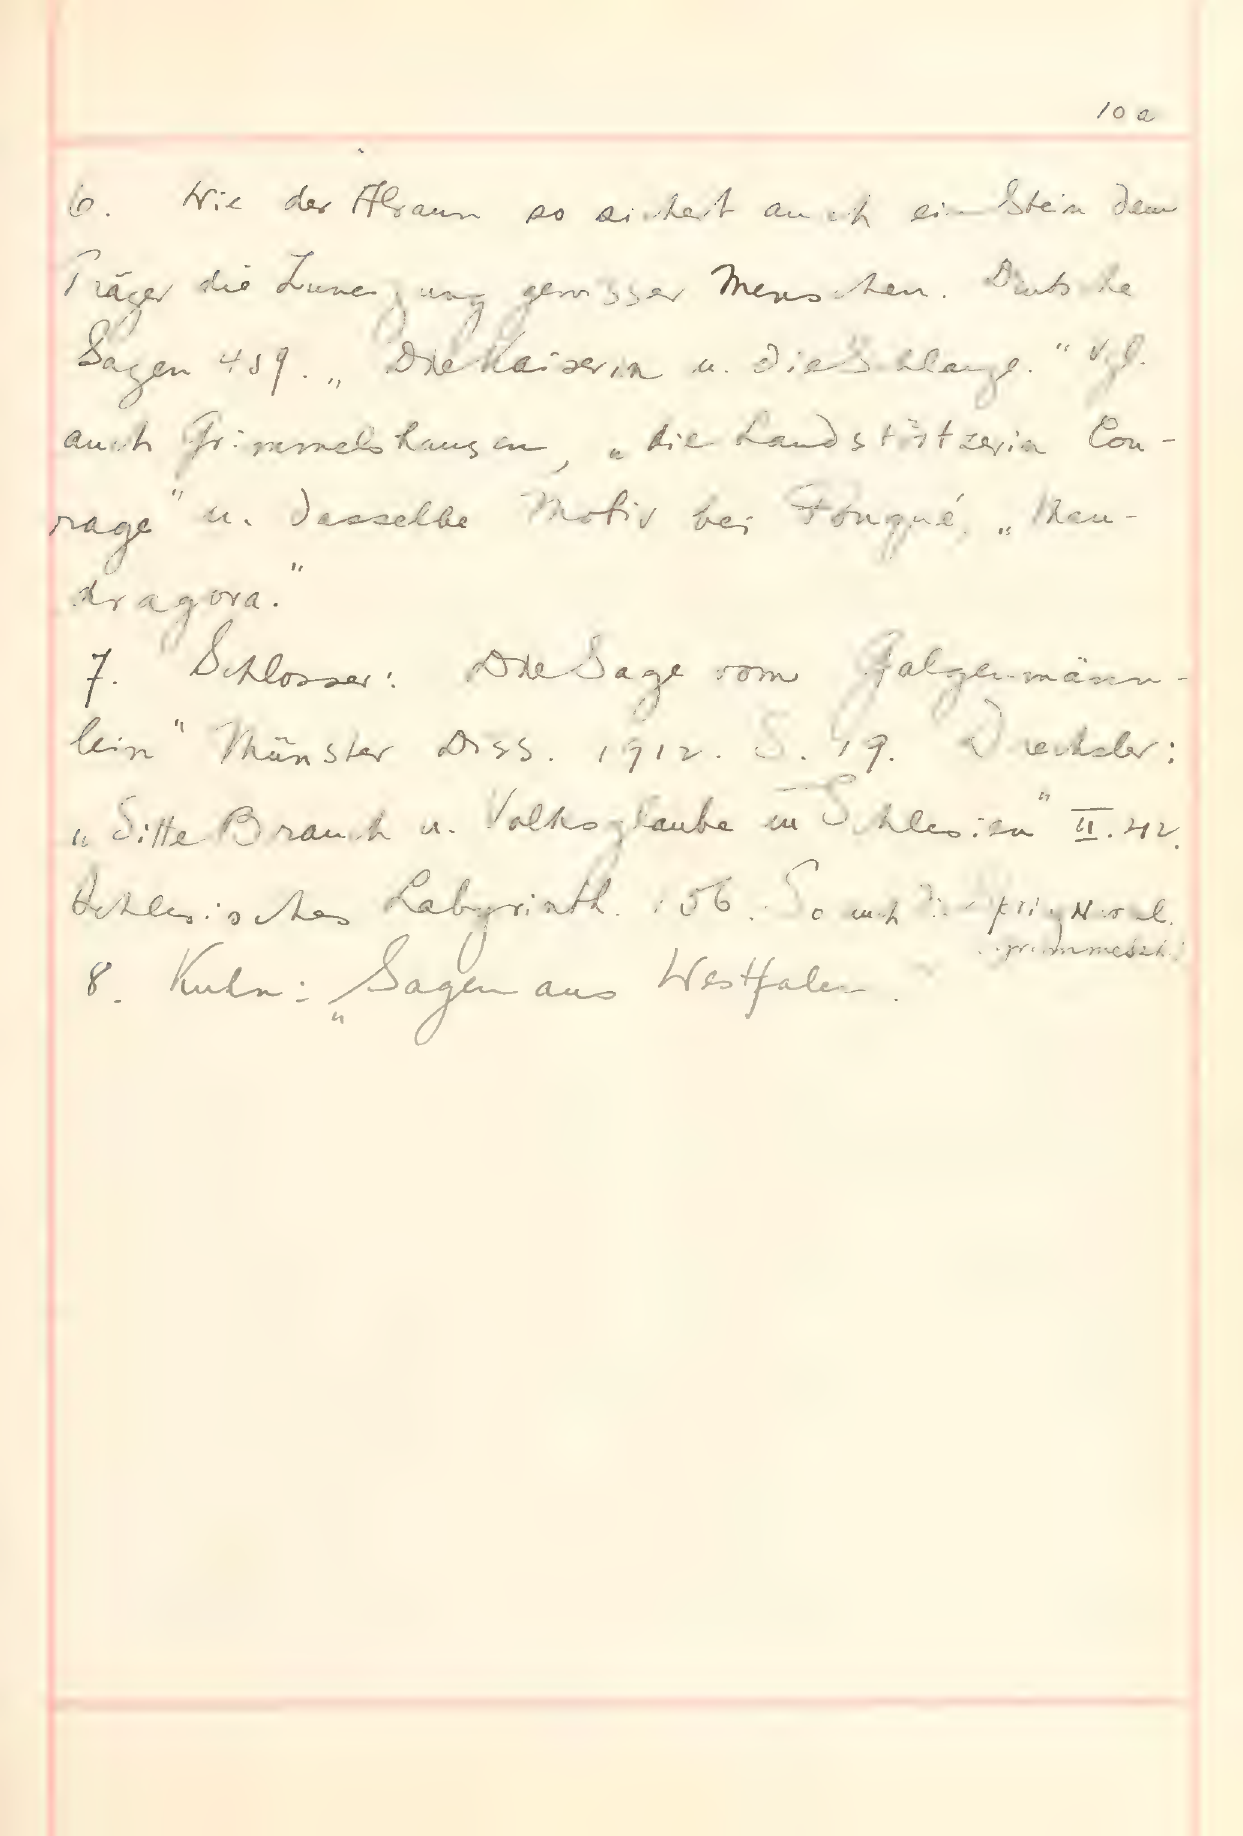 10 a
6. Wie der Alraun so sichert auch ein Stein dem
Träger die Zuneigung gewisser Menschen. Deutsche
Sagen 459. „Die Kaiserin u. die Schlange." Vgl.
auch Grimmelshausen, „die Landstörtzerin Cou-
rage" u. dasselbe Motiv bei Fouqué, „Man-
dragora."
7. Schlosser: Die Sage vom Galgenmänn-
lein" Münster Diss. 1912. S. 19. Drechsler:
„Sitte Brauch u. Volksglaube in Schlesien" II. 42.
Schlesisches Labyrinth. 156. So auch
8. Kuhn: „Sagen aus Westfalen.